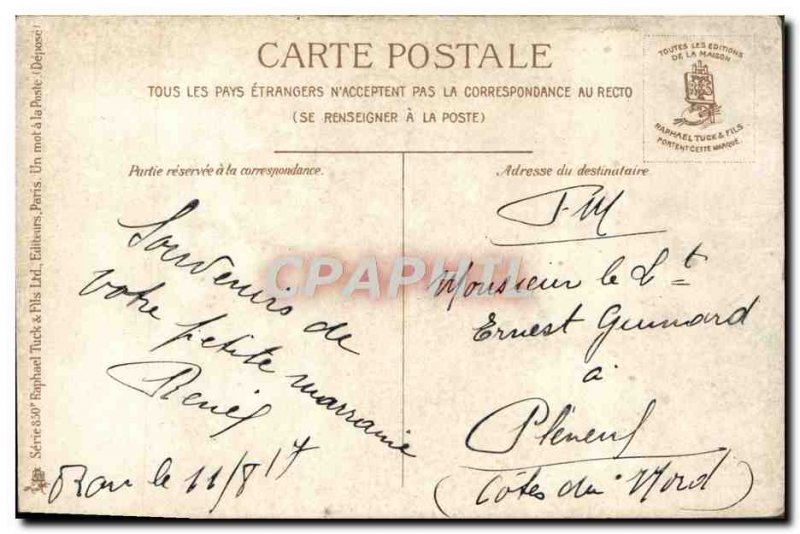 CARTE POSTALE
TOUS LES PAYS ÉTRANGERS N'ACCEPTENT PAS LA CORRESPONDANCE AU RECTO
(SE RENSEIGNER À LA POSTE)
TOUTES LES EDITIONS
DE LA MAISON
RAPHAEL TUCK & FILS
PORTENT CETTE MARQUE.
Série 850 Raphael Tuck & Fils Ltd., Editeurs, Paris. Un mot à la Poste. (Déposé)
Partie réservée à la correspondance.
Souvenirs de
votre petite marraine
le 11/8/17
Adresse du destinataire
F.M
Monsieur le Lt
Ernest
à
Pléneuf
(Côtes du Nord)
CPAPHIL